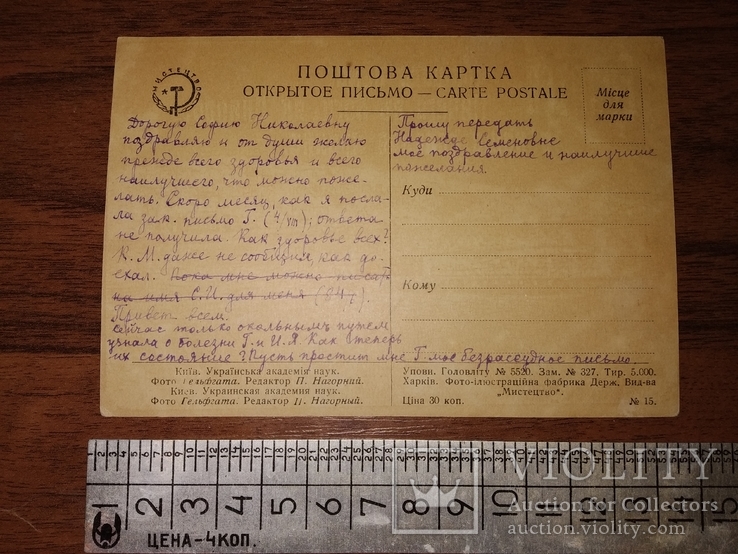 МИСТЕЦТВО
ПОШТОВА КАРТКА
ОТКРЫТОЕ ПИСЬМО — CARTE POSTALE
Місце
для
марки
Дорогую Софию Николаевну
поздравляю и от души желаю
прежде всего здоровья и всего
наилучшего, что можно поже-
лать. Скоро месяц, как я посла-
ла зак. письмо Г. (4/VIII); ответа
не получила. Как здоровье всех?
К. М. даже не сообщил, как до-
ехал. Пока мне можно писать
на имя С.И. для меня
Привет всем.
Сейчас только окольным путем
узнала о болезни Г. и И.Я. Как теперь
их состояние? Пусть простит мне Г. мое безрассудное письмо
Прошу передать
Надежде Семеновне
мое поздравление и наилучшие
пожелания.
Куди
Кому
Київ. Українська академія наук.
Фото Гельфгата. Редактор П. Нагорний.
Киев. Украинская академия наук.
Фото Гельфгата. Редактор П. Нагорный.
Уповн. Головліту № 5520. Зам. № 327. Тир. 5.000.
Харків. Фото-ілюстраційна фабрика Держ. Вид-ва
"Мистецтво".
Ціна 30 коп.
№ 15.
1 2 3 4 5 6 7 8 9 10 11 12 13 14 15
ЦЕНА-4КОП.
VIOLITY
Auction for Collectors
auction.violity.com